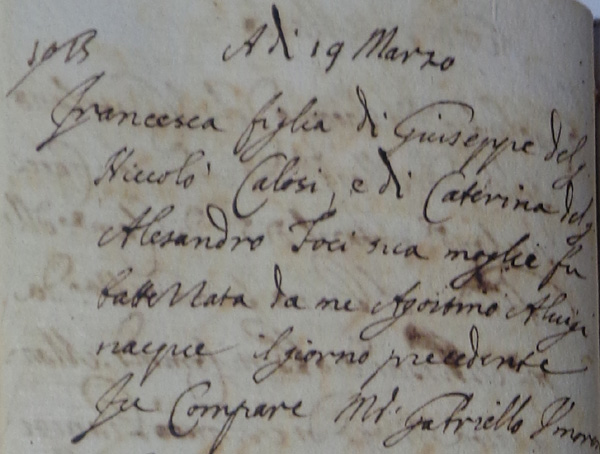 Adì 19 Marzo
Francesca figlia di Giuseppe del q
Niccolò Calosi, e di Caterina del q
Alesandro Foci sua moglie fu
battezzata da me Agostino Aluigi
nacque il giorno precedente
fu Compare Mr. Gabriello